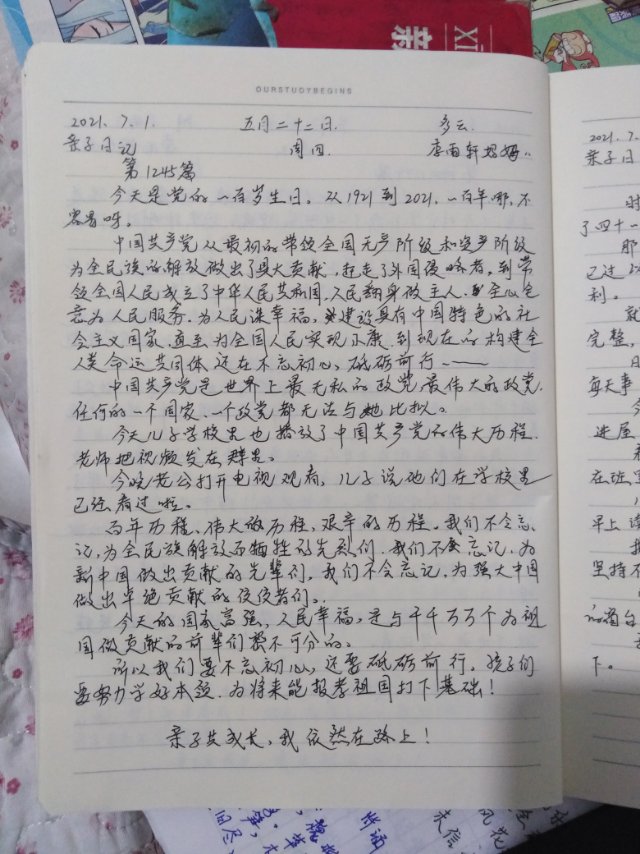 XI
OURSTUDYBEGINS
2021. 7. 1. 五月二十二日. 多云.
亲子日记 周四. 李雨轩妈妈..
第1245篇
今天是党的一百岁生日。从1921到2021.一百年哪,不
容易呀。
中国共产党从最初的带领全国无产阶级和资产阶级
为全民族的解放做出了巨大贡献,赶走了外国侵略者,到带
领全国人民成立了中华人民共和国.人民翻身做主人.全心全
意为人民服务.为人民谋幸福,建设具有中国特色的社
会主义国家.直至为全国人民实现小康.到现在的构建全
人类命运共同体还在不忘初心,砥砺前行——
中国共产党是世界上最无私的政党.最伟大的政党.
任何的一个国家.一个政党都无法与她比拟。
今天儿子学校里也播放了中国共产党的伟大历程.
老师把视频发在群里。
今晚老公打开电视观看,儿子说他们在学校里
已经看过啦。
百年历程,伟大的历程,艰辛的历程。我们不会忘
记,为全民族解放而牺牲的先烈们.我们不会忘记.为
新中国做出贡献的先辈们,我们不会忘记.为强大中国
做出卓绝贡献的佼佼者们。
今天的国泰富强,人民幸福,是与千千万万个为祖
国做贡献的前辈们密不可分的。
所以我们要不忘初心,还要砥砺前行。孩子们
要努力学好本领.为将来能报孝祖国打下基础!
亲子共成长,我依然在路上!
2021.7.
亲子日
时
了四十一
那
已过以
利。
就
完整,
每天事
今
进屋
在班里
早上读
坚持不
下。